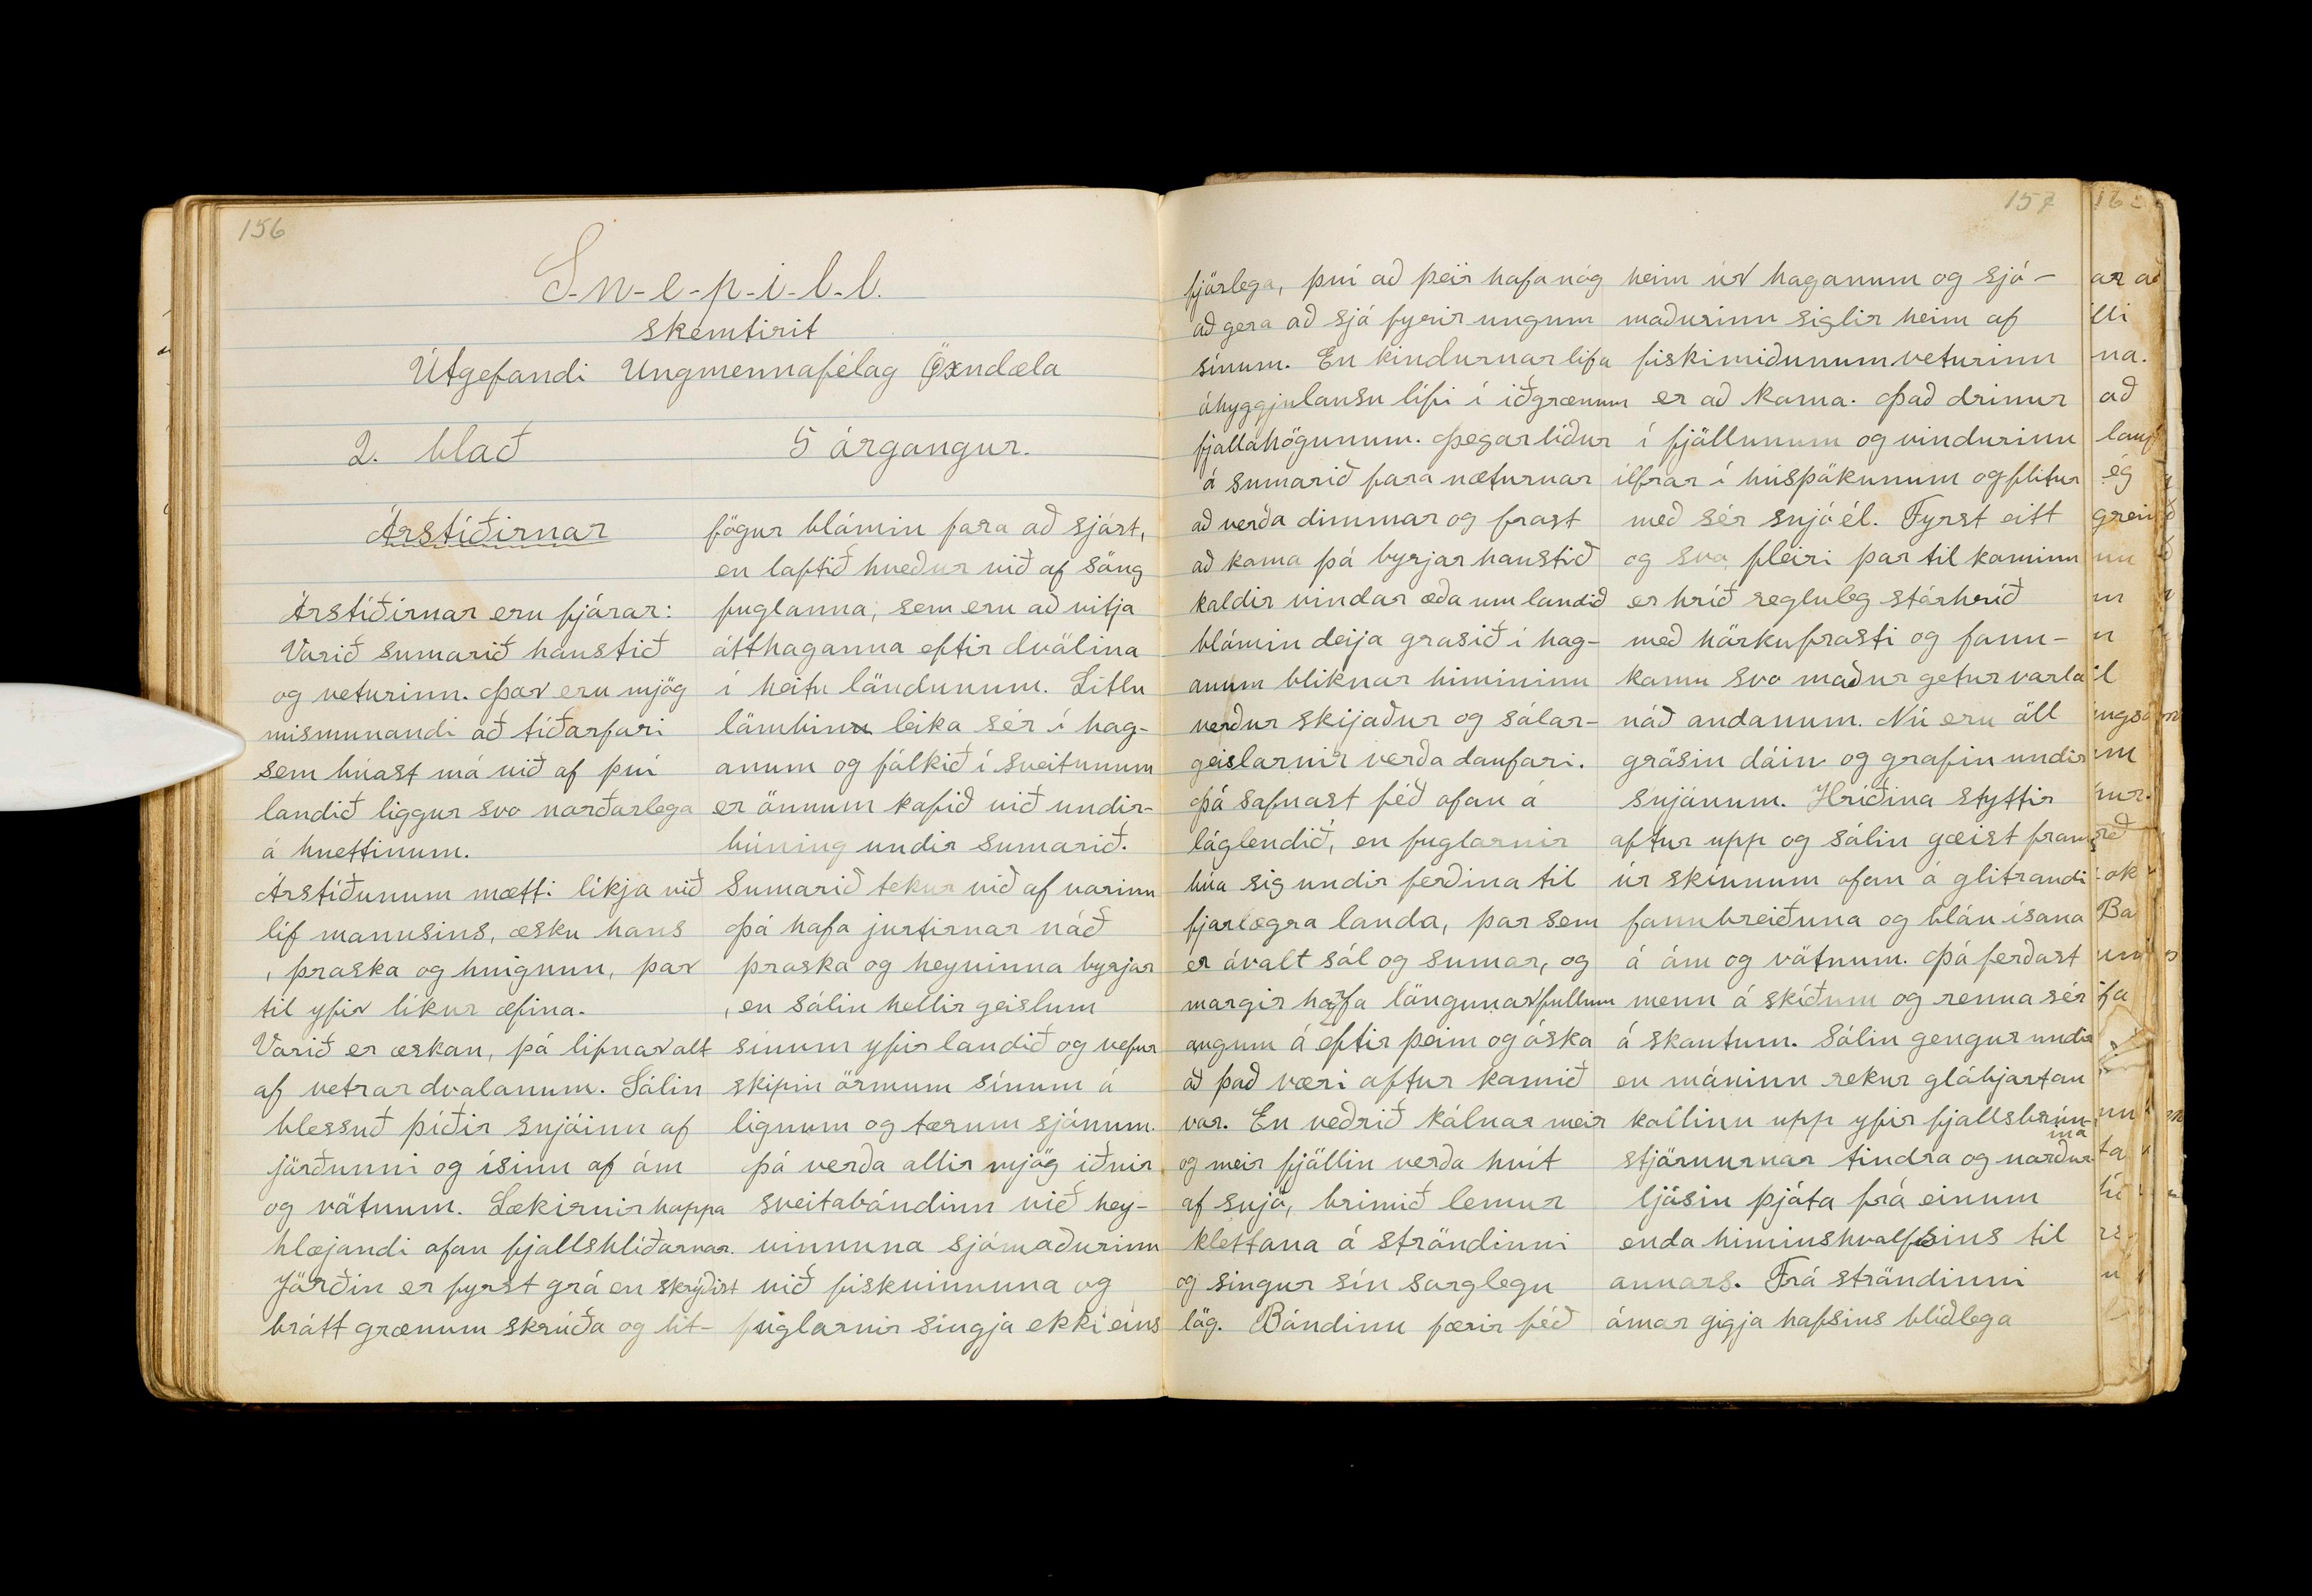 156
S-n-e-p-i-l-l.
skemtirit
Útgefandi Ungmennafélag Öxndæla
2. blað 5 árgangur.
Árstíðirnar
Árstíðirnar eru fjórar:
Vorið sumarið haustið
og veturinn. Þær eru mjög
mismunandi að tíðarfari
sem búast má við af því
landið liggur svo norðarlega
á hnettinum.
Árstíðunum mætti líkja við
líf mannsins, æsku hans
, þroska og hnignun, þar
til yfir líkur æfina.
Vorið er æskan, þá lifnar alt
af vetrardvalanum. Sólin
blessuð þíðir snjóinn af
jörðunni og ísinn af ám
og vötnum. Lækirnir hoppa
hlæjandi ofan fjallshlíðarnar.
Jörðin er fyrst grá en skrýðist
brátt grænum skrúða og lit-
fögur blómin fara að sjást,
en loftið kveður við af söng
fuglanna, sem eru að vitja
átthaganna eftir dvölina
í heitu löndunum. Litlu
lömbinn leika sér í hag-
anum og fólkið í sveitunum
er önnum kafið við undir-
búning undir sumarið.
Sumarið tekur við af vorinu
Þá hafa jurtirnar náð
þroska og heyvinna byrjar
, en sólin hellir geislum
sínum yfir landið og vefur
skipin örmum sínum á
lignum og tærum sjónum.
Þá verða allir mjög iðnir
sveitabóndinn við hey-
vinnuna sjómaðurinn
við fiskvinnuna og
fuglarnir singja ekki eins
157
fjörlega, því að þeir hafa nóg
að gera að sjá fyrir ungum
sínum. En kindurnar lifa
áhyggjulausu lífi í iðgrænum
fjallahögunum. Þegar líður
á sumarið fara næturnar
að verða dimmar og frost
að koma þá byrjar haustið
kaldir vindar æða um landið
blómin deija grasið í hag-
anum bliknar himininn
verður skijaður og sólar-
geislarnir verða daufari.
Þá safnast féð ofan á
láglendið, en fuglarnir
búa sig undir ferðina til
fjarlægra landa, þar sem
er ávalt sól og sumar, og
margir horfa löngunarfullum
augum á eftir þeim og óska
að það væri aftur komið
vor. En veðrið kólnar meir
og meir fjöllin verða hvít
af snjó, brimið lemur
klettana á ströndinni
og singur sín sorglegu
lög. Bóndinn færir féð
heim úr haganum og sjó-
maðurinn siglir heim af
fiskimiðunum veturinn
er að koma. Það drinur
í fjöllunum og vindurinn
ílfrar í húsþökunum og flitur
með sér snjóél. Fyrst eitt
og svo fleiri þar til kominn
er hríð regluleg stórhríð
með hörkufrosti og fann-
komu svo maður getur varla
náð andanum. Nú eru öll
grösin dáin og grafin undir
snjónum. Hríðina styttir
aftur upp og sólin gæist fram
úr skínnum ofan á glitrandi
fannbreiðuna og bláu ísana
á ám og vötnum. Þá ferðast
menn á skíðum og renna sér
á skautum. Sólin gengur undir
en máninn rekur glóbjartan
kollinn upp yfir fjallsbrún-
ina
stjörnurnar tindra og norður-
ljósin þjóta frá einum
enda himinshvalfsins til
annars. Frá ströndinni
ómar gígja hafsins blíðlega